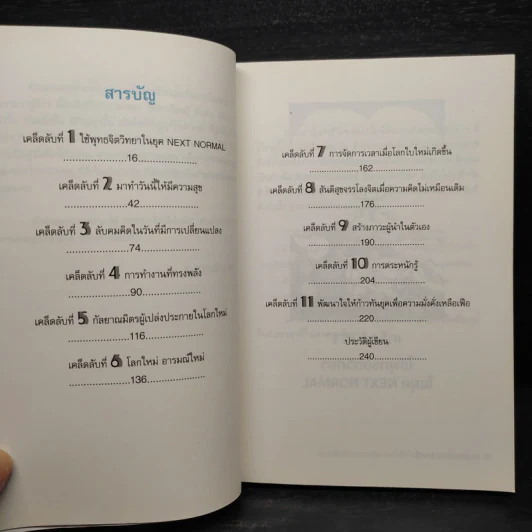 สารบัญ
เคล็ดลับที่ 1 ใช้พุทธจิตวิทยาในยุค NEXT NORMAL
......................16......................
เคล็ดลับที่ 2 มาทำวันนี้ให้มีความสุข
......................42......................
เคล็ดลับที่ 3 ลับคมคิดในวันที่มีการเปลี่ยนแปลง
......................74......................
เคล็ดลับที่ 4 การทำงานที่ทรงพลัง
......................90......................
เคล็ดลับที่ 5 กัลยาณมิตรผู้เปล่งประกายในโลกใหม่
......................116......................
เคล็ดลับที่ 6 โลกใหม่ อารมณ์ใหม่
......................136......................
เคล็ดลับที่ 7 การจัดการเวลาเมื่อโลกใบใหม่เกิดขึ้น
......................162......................
เคล็ดลับที่ 8 สันติสุขจรรโลงจิตเมื่อความคิดไม่เหมือนเดิม
......................176......................
เคล็ดลับที่ 9 สร้างภาวะผู้นำในตัวเอง
......................190......................
เคล็ดลับที่ 10 การตระหนักรู้
......................204......................
เคล็ดลับที่ 11 พัฒนาใจให้ก้าวทันยุคเพื่อความมั่งคั่งเหลือเฟือ
......................220......................
ประวัติผู้เขียน
......................240......................